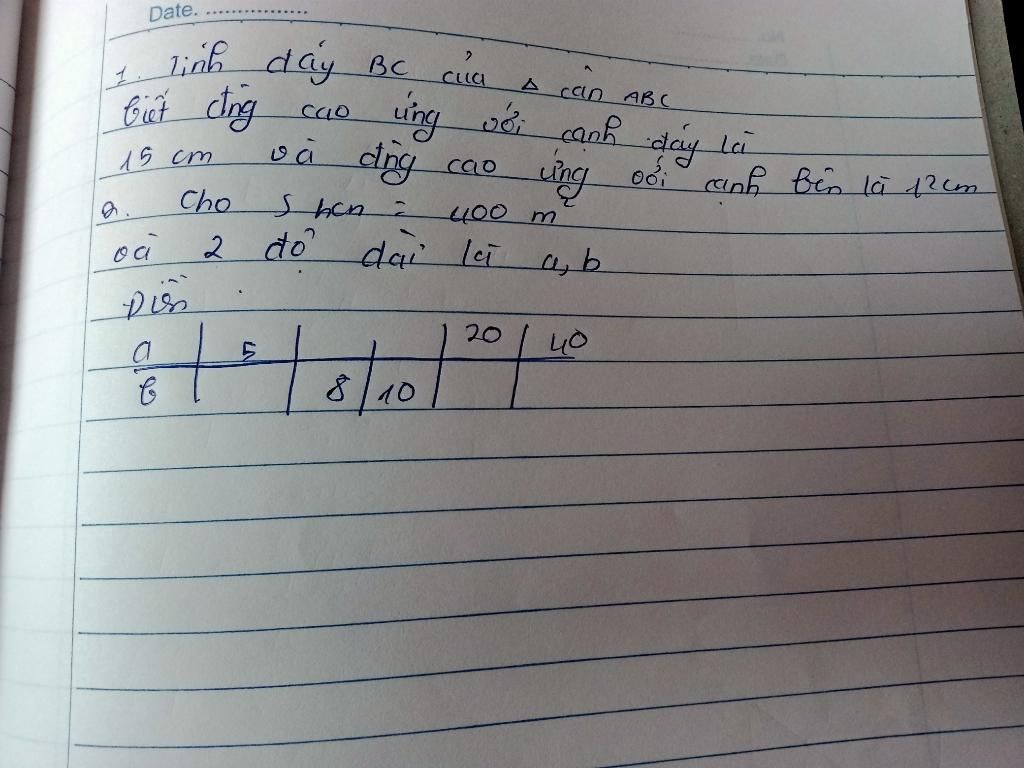 Date. ................
1. Tính đáy BC của Δ cân ABC
biết đng cao ứng với cạnh đáy là
15 cm và đng cao ứng với cạnh bên là 12cm
2. Cho S hcn = 400 m²
và 2 độ dài là a, b
Điền
a | 5 | | | 20 | 40
b | | 8 | 10 | |